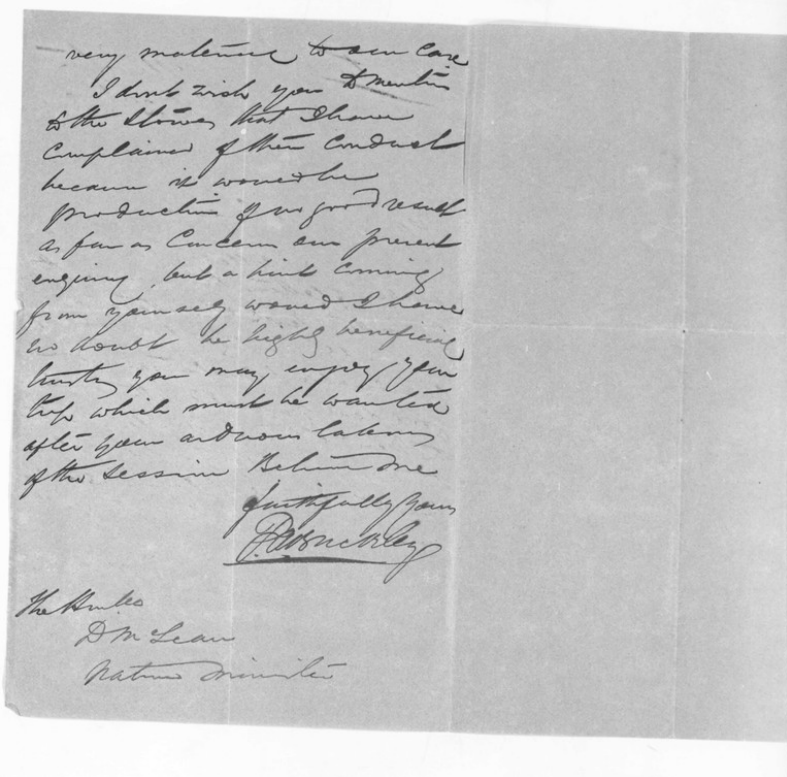 very material to our Case
I dont wish you to mention
to the that I have
complained of their conduct
because it would be
productive of no good result
as far as Concerns our present
enquiry, but a hint coming
from yourself would I have
no doubt be highly beneficial
trusting you may enjoy your
trip which must be wanted
after your arduous labours
of the Session Believe me
faithfully yours
P.A. Buckley
The Honble
D McLean
Native Minister